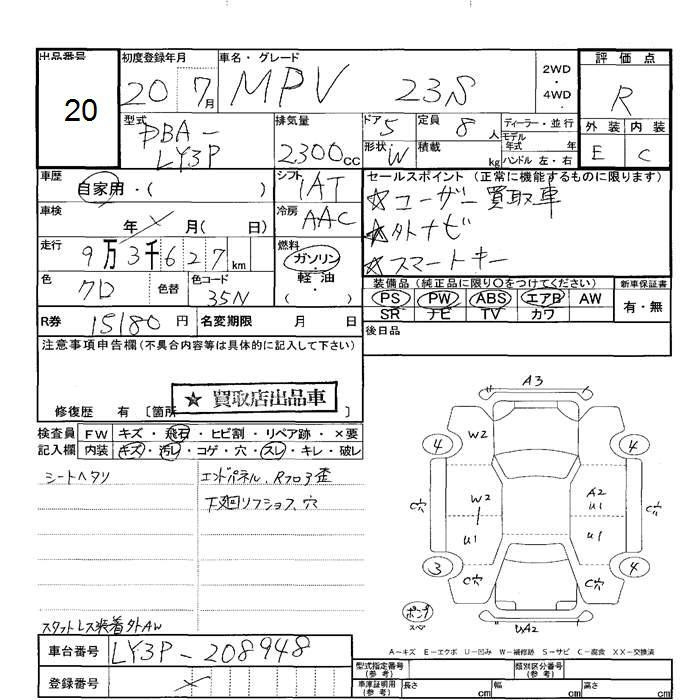 出品番号 20
初度登録年月 20 7月
車名・グレード MPV 23S
2WD・4WD・
評価点 R
外装 E 内装 C
型式 DBA-LY3P
排気量 2300cc
ドア 5 形状 W
定員 8人 積載 kg
ディーラー・並行
モデル年式 年
ハンドル 左・右
車歴 自家用・( )
シフト IAT
セールスポイント (正常に機能するものに限ります)
☆ユーザー買取車
☆外ナビ
☆スマートキー
車検 年 × 月( 日)
冷房 AAC
走行 9万3千627km
燃料 ガソリン・軽・油・( )
色 クロ 色替 色コード 35N
装備品 (純正品に限り○をつけてください)
PS PW ABS エアB AW
SR ナビ TV カワ
新車保証書 有・無
R券 15180円 名変期限 月 日
後日品
注意事項申告欄(不具合内容等は具体的に記入して下さい)
☆ 買取店出品車
修復歴 有 [箇所 ]
検査員記入欄
FW キズ・飛石・ヒビ割・リペア跡・×要
内装 キズ・汚レ・コゲ・穴・スレ・キレ・破レ
シートヘタリ
エンドパネル、Rフロア歪
下廻リフショク、穴
スタットレス装着外AW
A3
W2
4 4
C穴 W2 A2 U1 C穴
U1 U1
3 4
C穴 C穴
ポンプ
スペア
UA2
A-キズ E-エクボ U-凹み W-補修跡 S-サビ C-腐食 XX-交換済
車台番号 LY3P-208948
登録番号 ×
型式指定番号(参考) 類別区分番号(参考)
車庫証明用(参考) 長さ cm 幅 cm 高さ cm